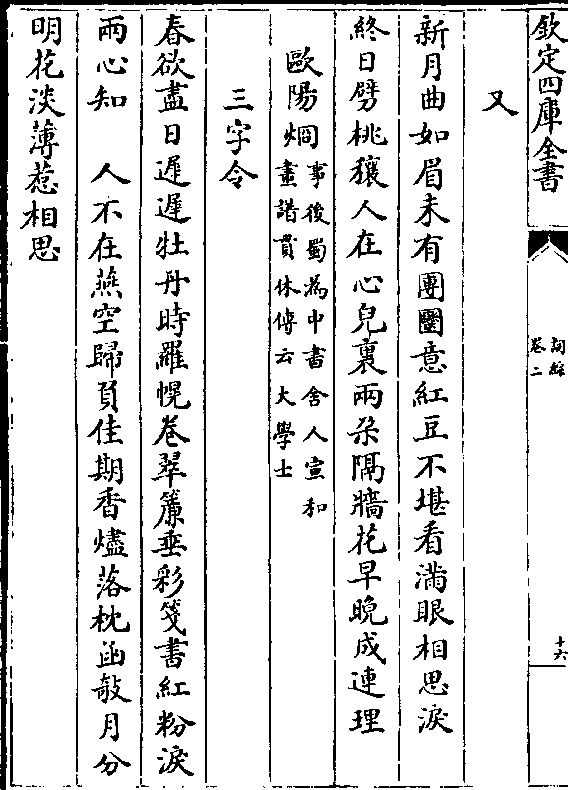 欽定四庫全書
詞綜
卷二
十六
又
新月曲如眉未有團圞意紅豆不堪看滿眼相思淚
終日劈桃穰人在心兒裏兩朵隔牆花早晚成連理
歐陽炯事後蜀為中書舍人宣和
畫譜貫休傳云大學士
三字令
春欲盡日遲遲牡丹時羅幌卷翠簾垂彩箋書紅粉淚
兩心知　人不在燕空歸負佳期香燼落枕函敧月分
明花淡薄惹相思